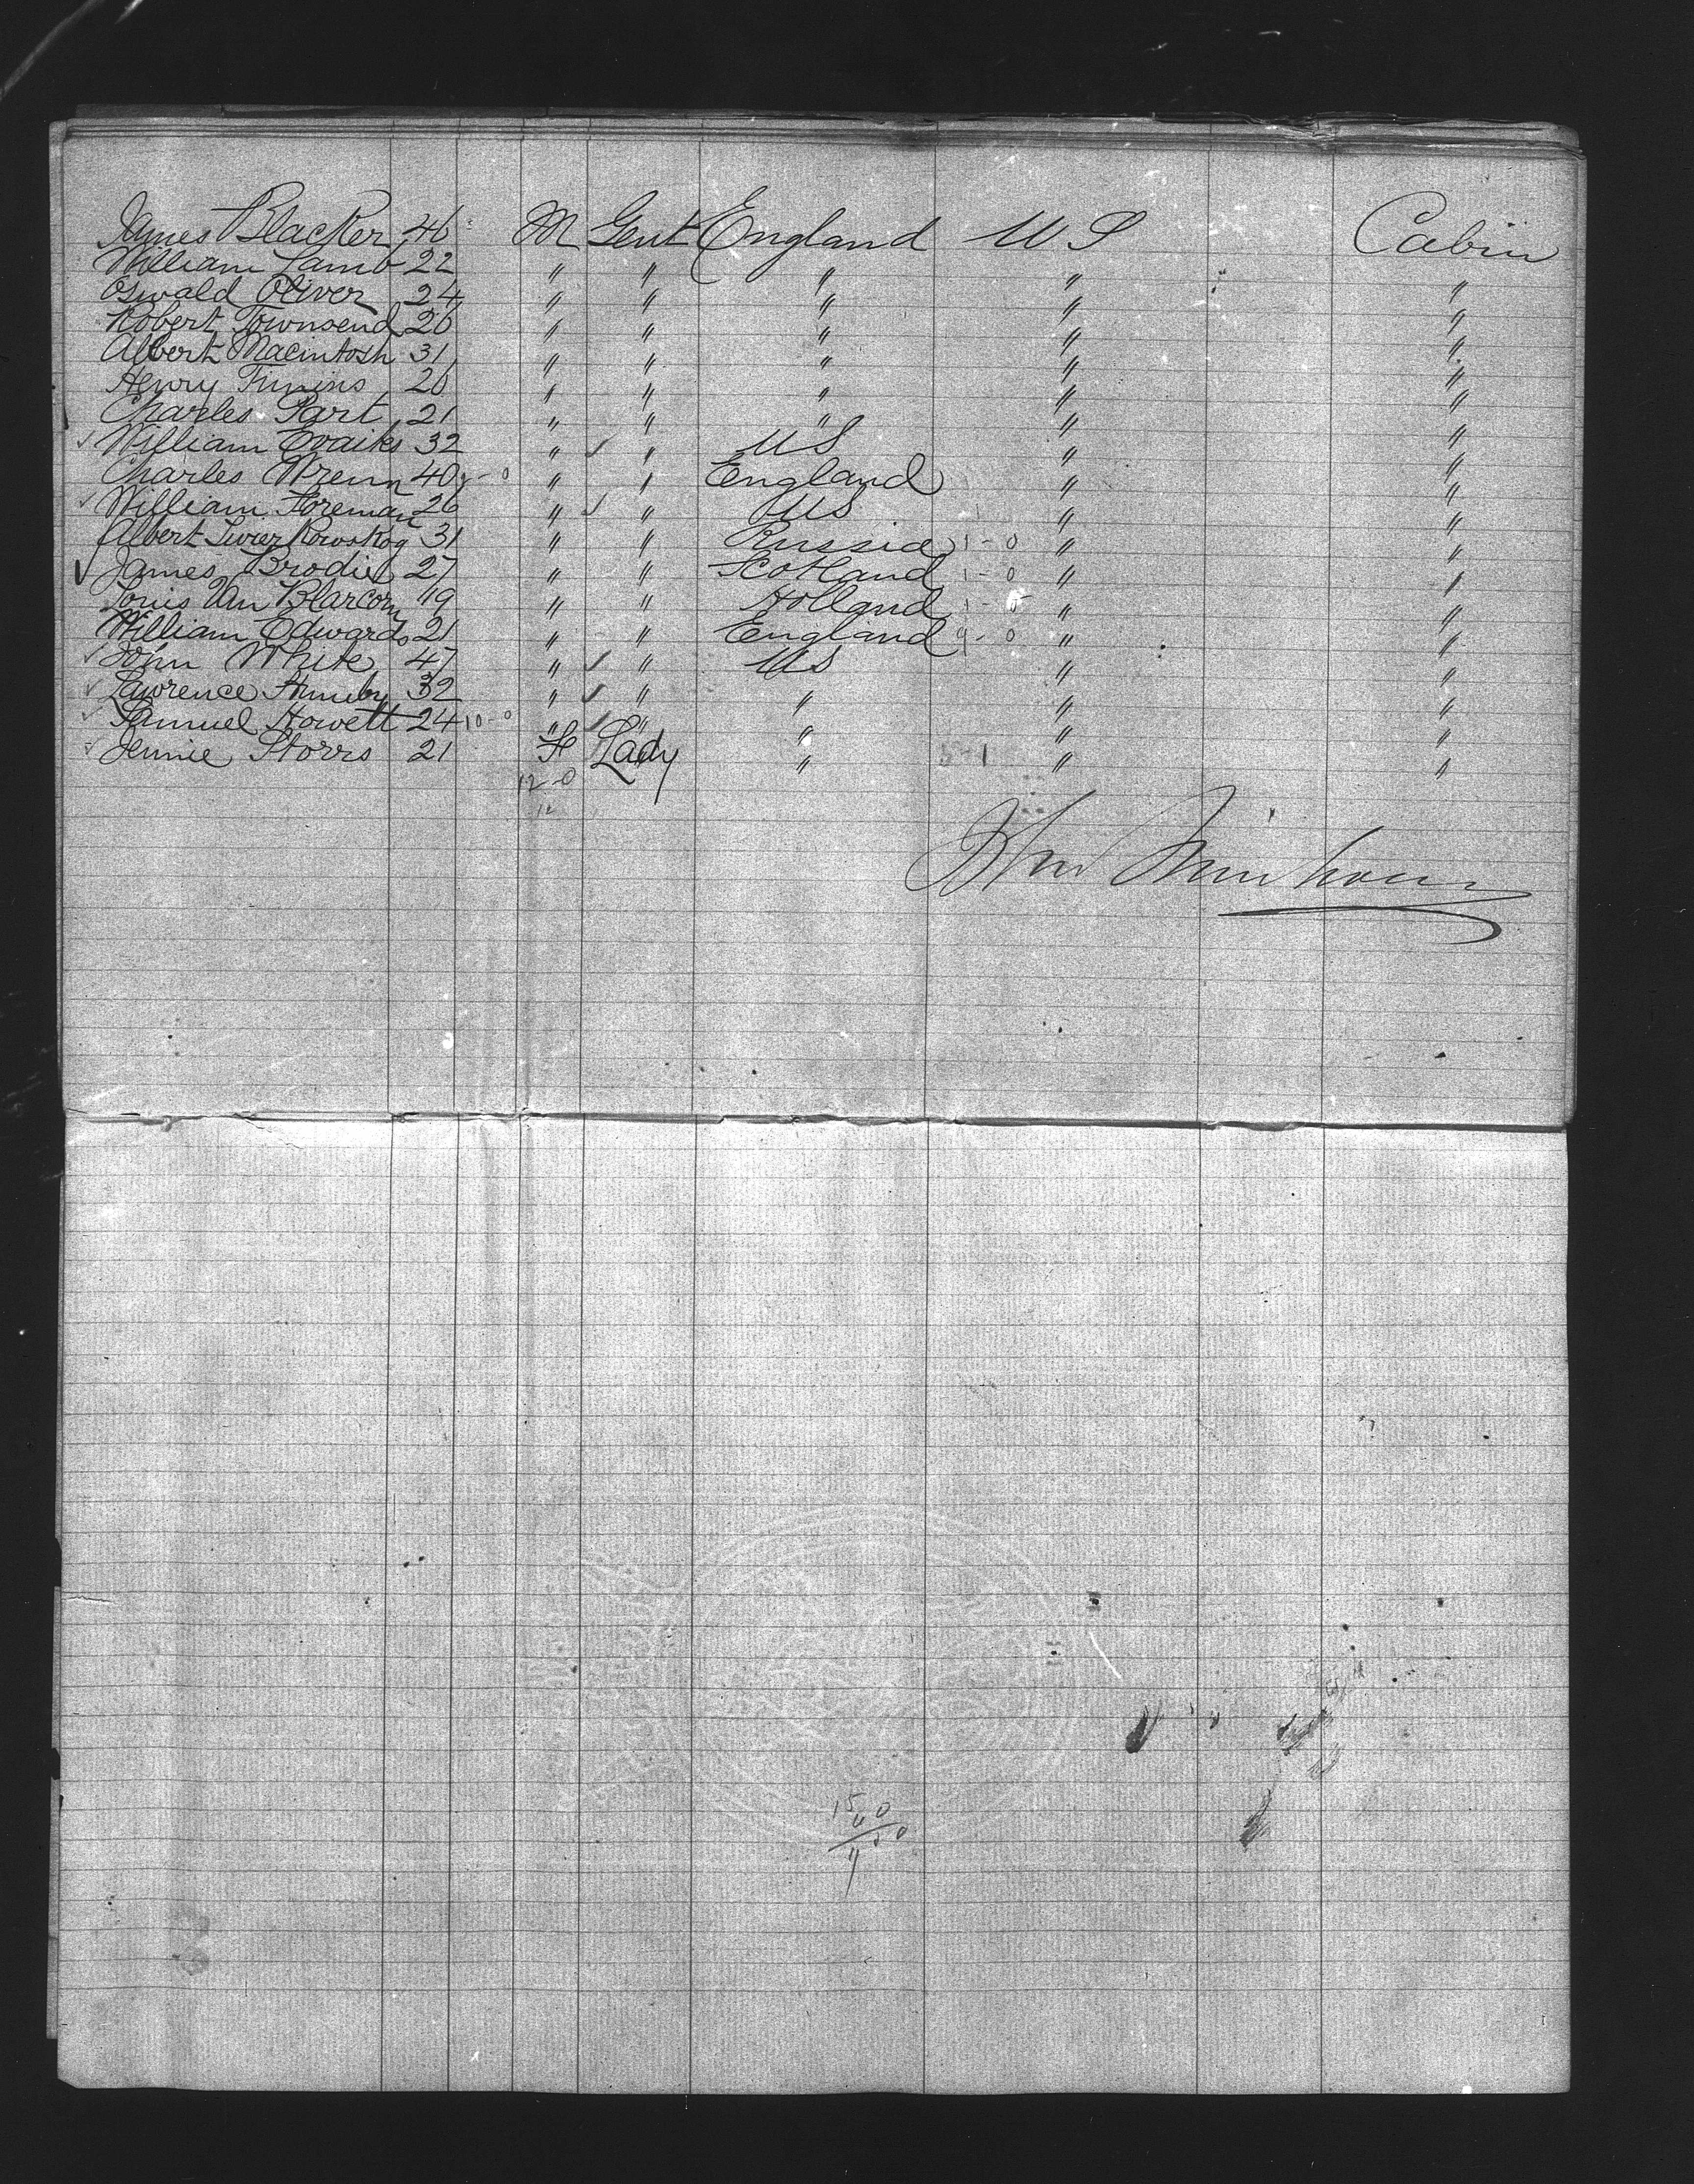 James Blacker 46 M Gent England U S Cabin
William Lamb 22 " " " " "
Oswald Oliver 24 " " " " "
Robert Townsend 26 " " " " "
Albert Macintosh 31 " " " " "
Henry Timins 26 " " " " "
Charles Part 21 " " " " "
✓ William 32 " ✓ " US " "
Charles Wrenn 40 " " England " "
✓ William Foreman 26 " ✓ " US " "
Albert 31 " " Russia 1-0 " "
✓ James Brodie 27 " " Scotland 1-0 " "
Louis Van Blarcom 19 " " Holland " "
William Edwards 21 " " England 9-0 " "
✓ John White 47 " ✓ " US " "
✓ Lawrence 32 " ✓ " " " "
✓ Samuel Howett 24 10-0 " ✓ " " " "
✓ Jennie Storrs 21 F Lady " 5-1 " "
12-0
12
15 0